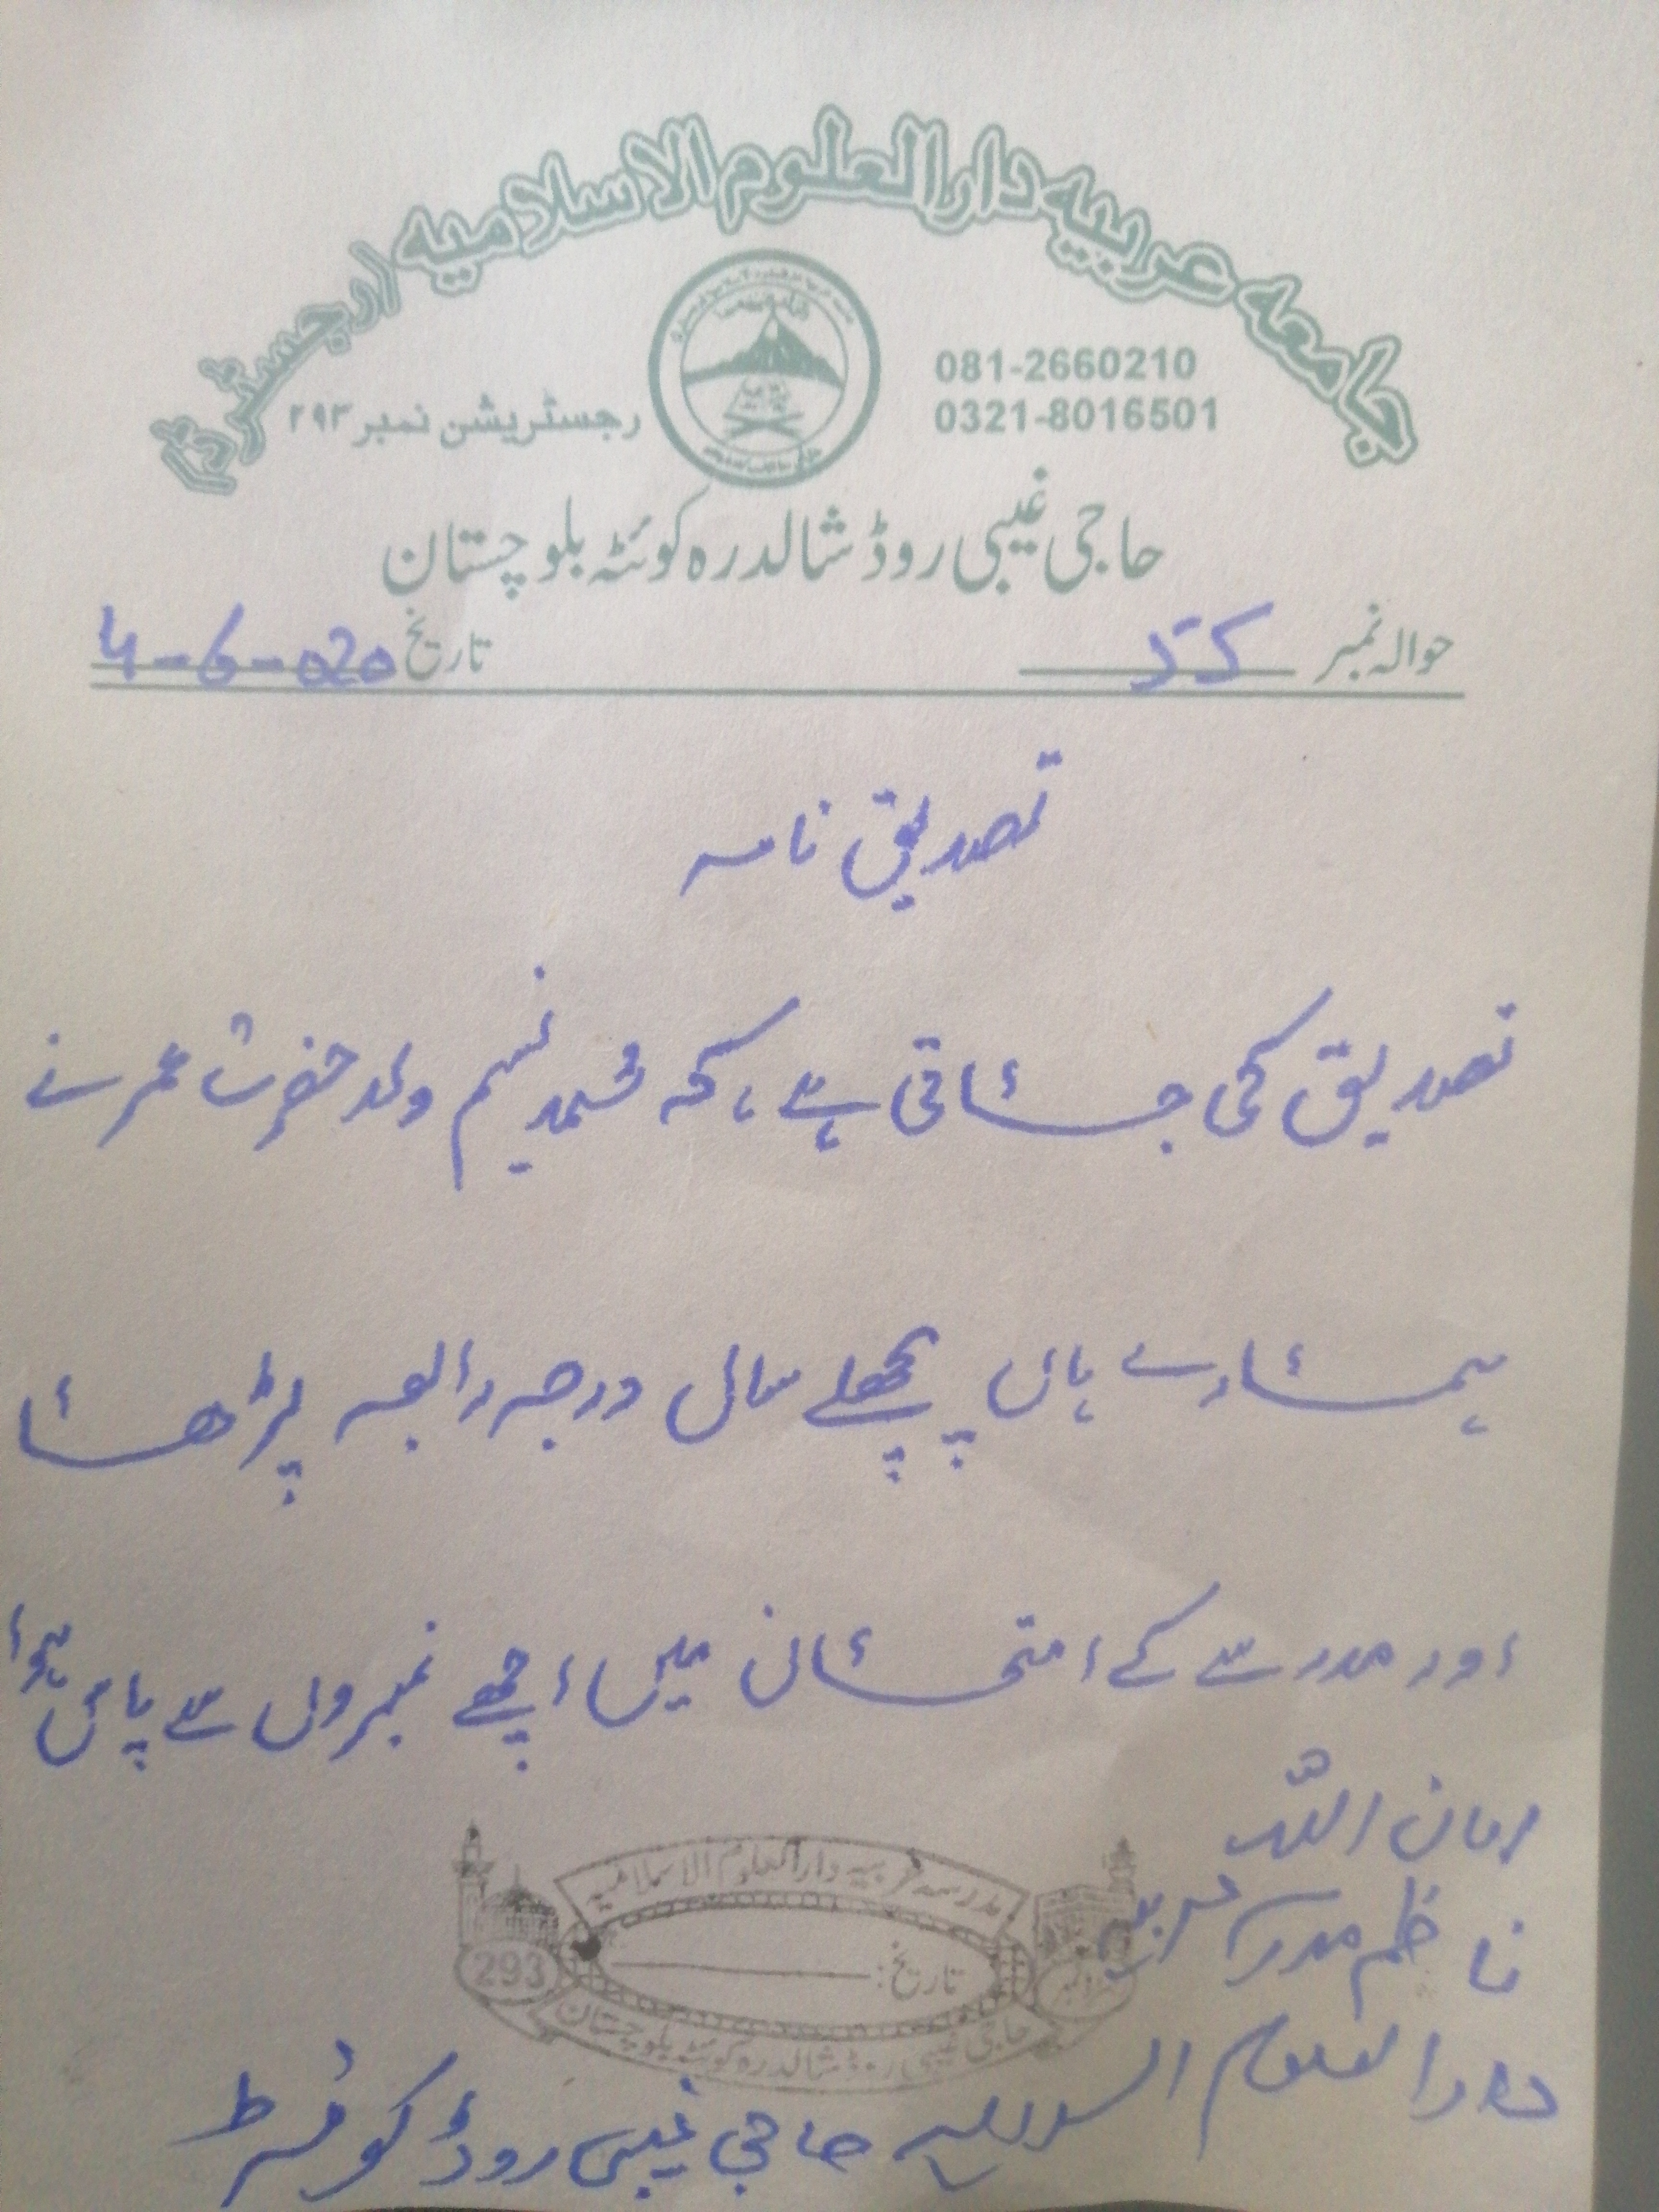 جامعہ عربیہ دارالعلوم الاسلامیہ (رجسٹرڈ)
081-2660210
0321-8016501
رجسٹریشن نمبر ۲۹۳
حاجی غیبی روڈ شالدرہ کوئٹہ بلوچستان
حوالہ نمبر
تاریخ 4-6-020
تصدیق نامہ
تصدیق کی جاتی ہے، کہ محمد نسیم ولد حضرت عمر نے
ہمارے ہاں پچھلے سال درجہ رابعہ پڑھا
اور مدرسے کے امتحان میں اچھے نمبروں سے پاس ہوا
امان اللہ
ناظم مدرسہ عربیہ
دارالعلوم حاجی غیبی روڈ کوئٹہ
مدرسہ عربیہ دارالعلوم الاسلامیہ
293
تاریخ:
حاجی غیبی روڈ شالدرہ کوئٹہ بلوچستان